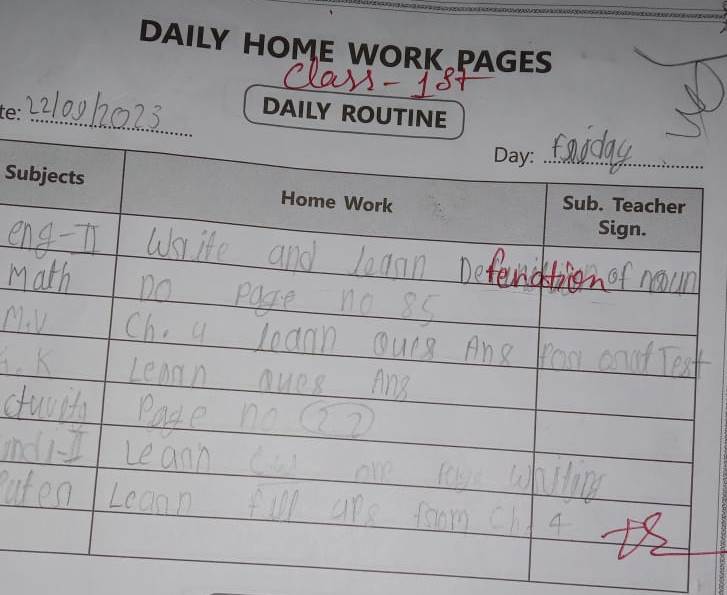 DAILY HOME WORK PAGES
Class - 1st
DAILY ROUTINE
te: 22/09/2023
Day: Fraiday
Subjects Home Work Sub. Teacher Sign.
eng-II Write and learn Defenation of noun
Math DO page no 85
M.V Ch. 4 learn Ques Ans for oral Test
G.K Learn Ques Ans
ctivity Page no 22
indi-II Learn writing
Learn fill ups from Ch. 4